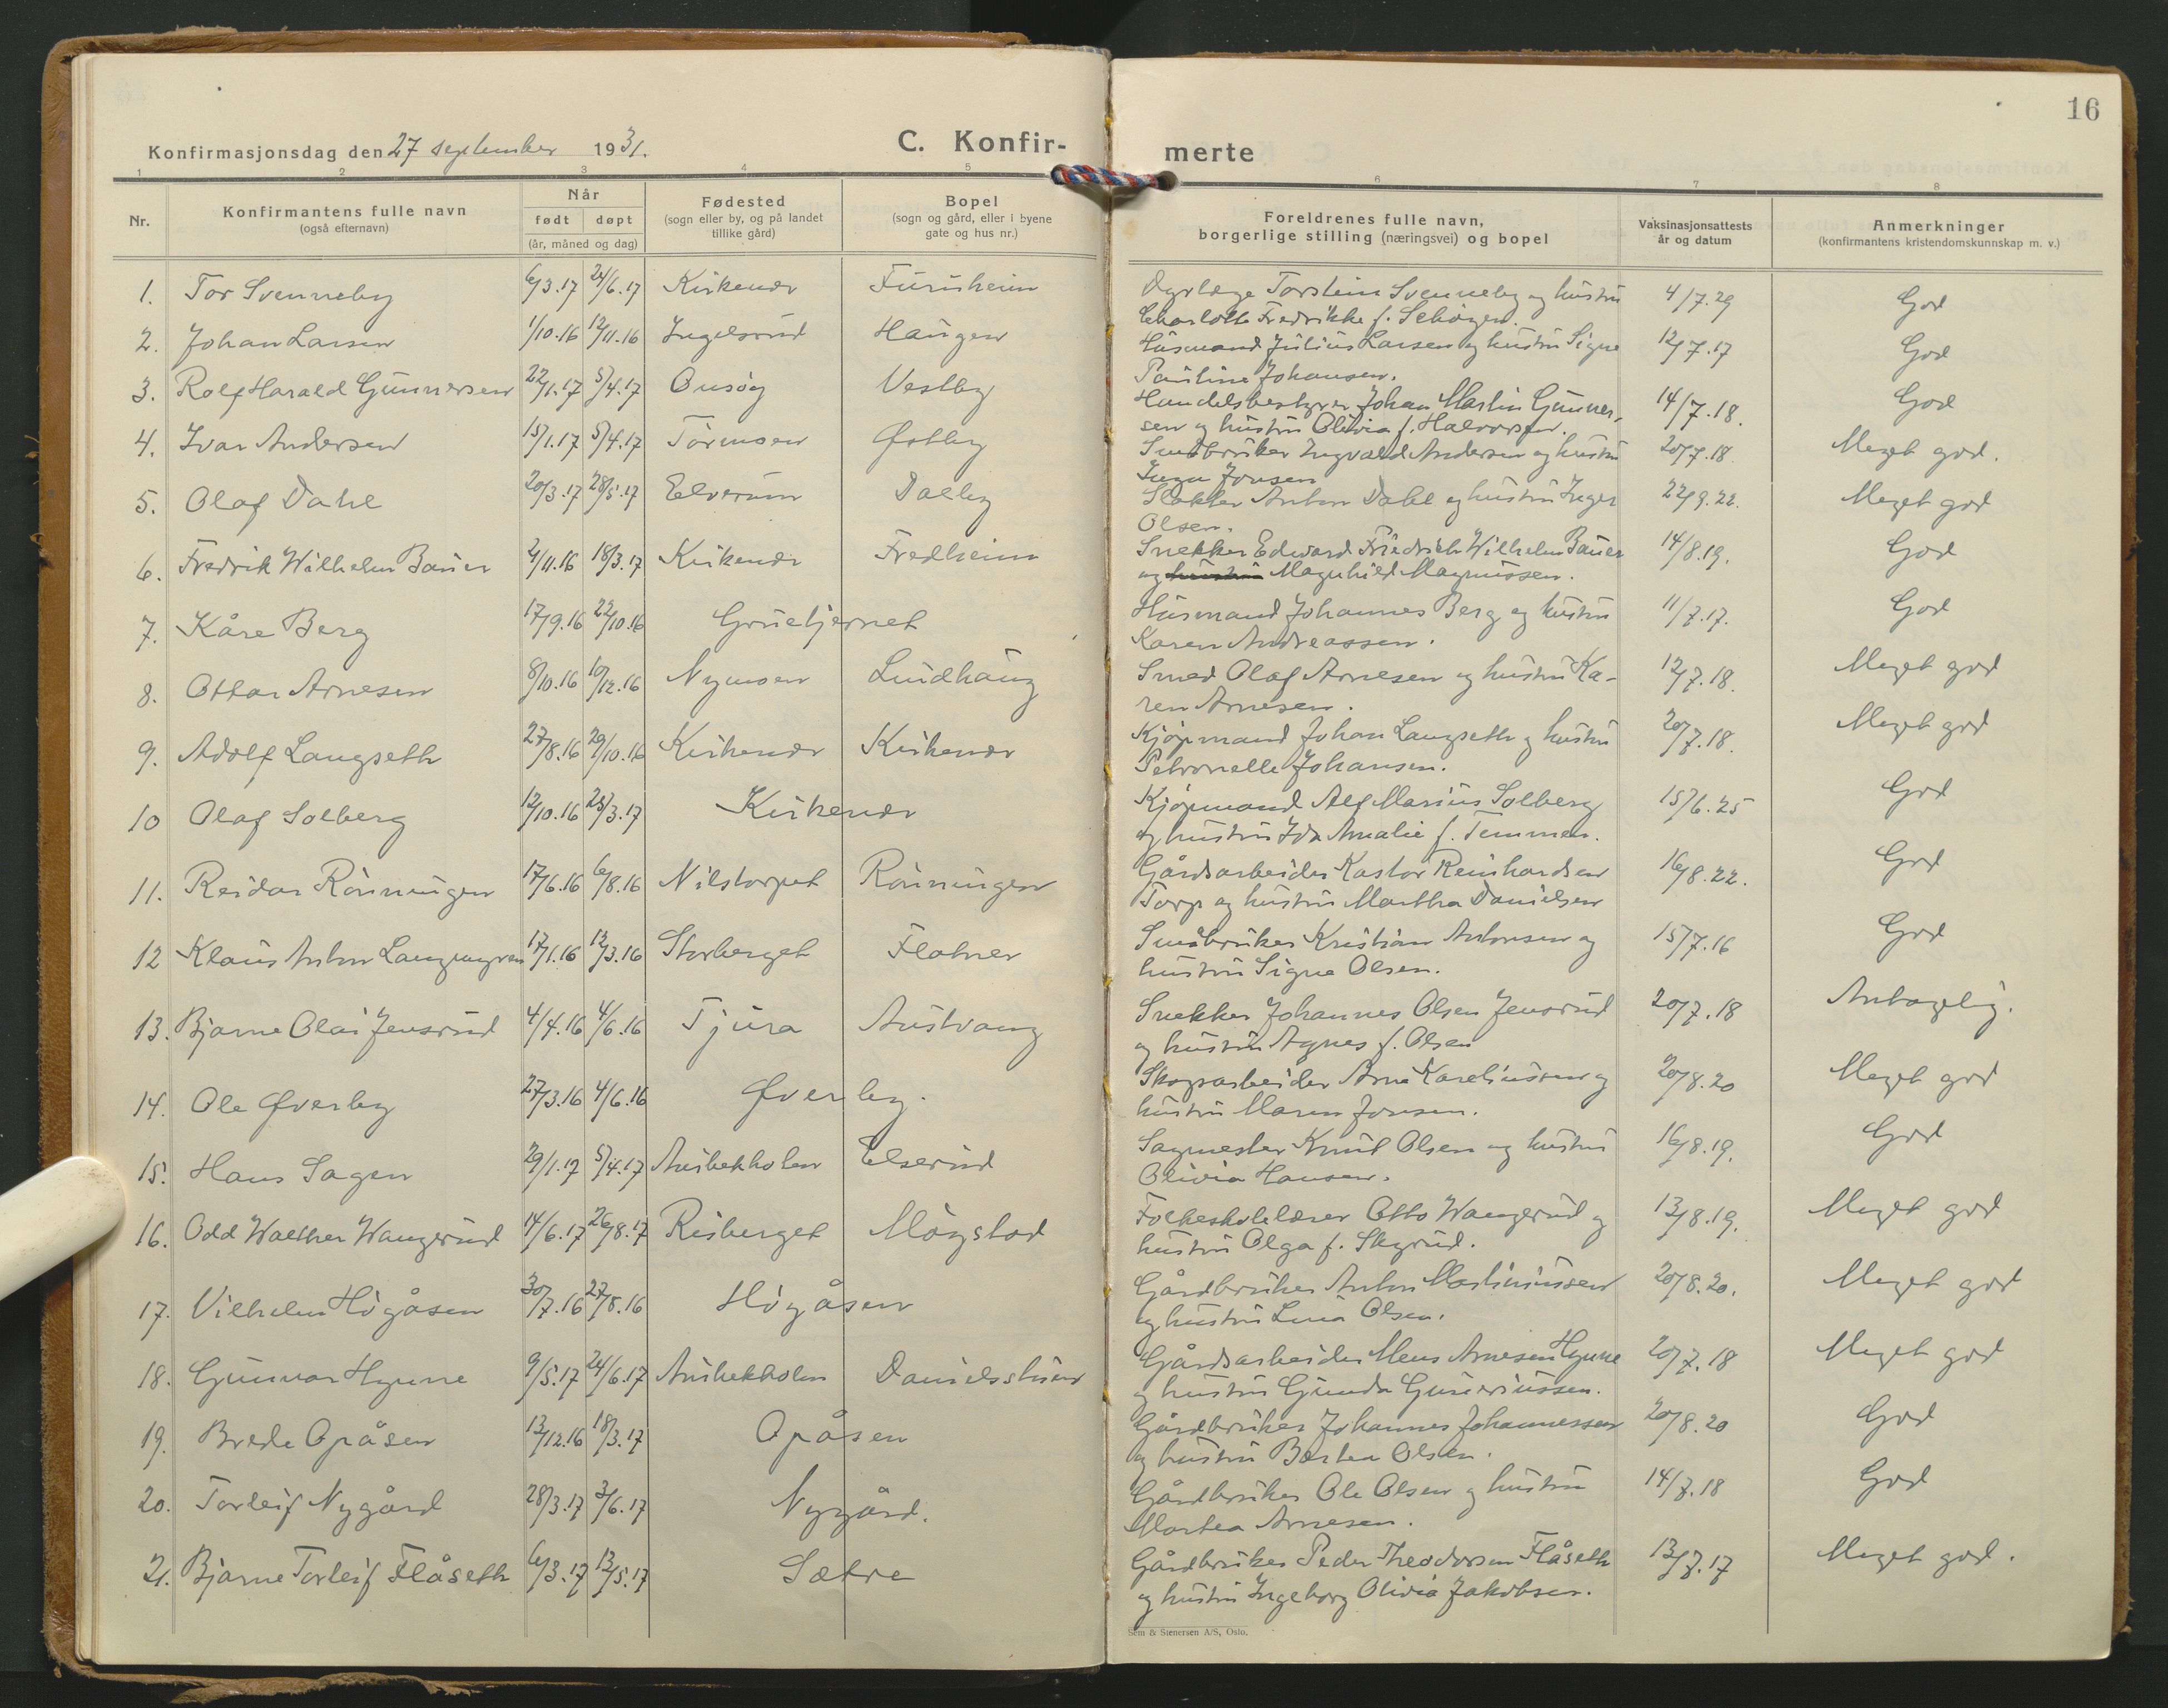 16
Konfirmasjonsdag den 27 september 1931.
C. Konfir-
merte
1 2 3 4 5 6 7 8
Nr.
Konfirmantens fulle navn
(også efternavn)
Når
født døpt
(år, måned og dag)
Fødested
(sogn eller by, og på landet
tillike gård)
Bopel
(sogn og gård, eller i byene
gate og hus nr.)
Foreldrenes fulle navn,
borgerlige stilling (næringsvei) og bopel
Vaksinasjonsattests
år og datum
Anmerkninger
(konfirmantens kristendomskunnskap m. v.)
1. Tor Svenneby 6/3.17 24/6.17 Kirkenær Furuheim Dyrlæge Torstein Svenneby og hustru 4/7.29 God
Charlotte Fredrikke f. Schøyen.
2. Johan Larsen 1/10.16 12/11.16 Ingelsrud Haugen Husmand Julius Larsen og hustru Signe 12/7.17 God
Pauline Johansen.
3. Rolf Harald Gunnersen 22/1.17 5/4.17 Ousög Vestby Handelsbestyrer Johan Martin Gunner- 14/7.18. God
sen og hustru Olivia f. Halvorsen.
4. Ivar Andersen 15/1.17 5/4.17 Törmoen Østby Småbruker Ingvald Andersen og hustru 20/7.18 Meget god.
Inga Jonsen
5. Olaf Dahl 20/3.17 28/5.17 Elverum Dalby Slakter Anton Dahl og hustru Inger 22/9.22. Meget god
Olsen.
6. Fredrik Wilhelm Bauer 2/11.16 18/3.17 Kirkenær Fredheim Snekker Edward Friedrich Wilhelm Bauer 14/8.19. God
og hustru Magnhild Magnussen.
7. Kåre Berg 17/9.16 22/10.16 Gruetjernet Husmand Johannes Berg og hustru 11/7.17. God
Karen Andreassen.
8. Ottar Arnesen 8/10.16 10/12.16 Nymoen Lindhaug Smed Olaf Arnesen og hustru Ka- 12/7.18. Meget god
ren Arnesen.
9. Adolf Langseth 27/8.16 29/10.16 Kirkenær Kirkenær Kjøpmand Johan Langseth og hustru 20/7.18. Meget god
Petronelle Johansen.
10 Olaf Solberg 12/10.16 25/3.17 Kirkenær Kjöpmand Alf Marius Solberg 15/6.25 God
og hustru Ida Amalie f. Temmen.
11. Reidar Rönningen 17/6.16 6/8.16 Nilstorpet Rönningen Gårdsarbeider Kastor Reinhardsen 16/8.22. God
Torp og hustru Martha Danielsen
12 Klaus Anton Langmyren 17/1.16 12/3.16 Storberget Flatner Småbruker Kristian Antonsen og 15/7.16 God
hustru Signe Olsen.
13. Bjarne Olai Jensrud 4/4.16 4/6.16 Tjura Austvang Snekker Johannes Olsen Jensrud 20/7.18 Antagelig.
og hustru Agnes f. Olsen
14. Ole Øverby 27/3.16 4/6.16 Øverby. Skogsarbeider Arne Karelinsen og 20/8.20 Meget god
hustru Maren Jonsen.
15. Hans Sagen 29/1.17 5/4.17 Aurbekkolen Elserud Sagmester Knut Olsen og hustru 16/8.19. God
Olivia Hansen.
16. Odd Walther Wangerud 14/6.17 26/8.17 Risberget Mögstad Folkeskolelærer Otto Wangerud og 13/8.19. Meget god
hustru Olga f. Skyrud.
17. Vilhelm Högåsen 30/7.16 27/8.16 Högåsen Gårdbruker Anton Martiniussen 20/8.20. Meget god
og hustru Lina Olsen.
18. Gunnar Hynne 9/5.17 24/6.17 Aurbekkolen Danielsstuen Gårdsarbeider Mens Arnesen Hynne 20/7.18 Meget god
og hustru Gunda Guneriussen.
19. Brede Opåsen 13/12.16 18/3.17 Opåsen Gårdbruker Johannes Johannessen 20/8.20 God
og hustru Bertea Olsen.
20. Torleif Nygård 28/3.17 3/6.17 Nygård. Gårdbruker Ole Olsen og hustru 14/7.18 God
Martea Arnesen.
21. Bjarne Torleif Flåseth 6/3.17 13/5.17 Sætre Gårdbruker Peder Theodorsen Flåseth 13/7.17 Meget god.
og hustru Ingeborg Olivia Jakobsen.
Sem & Stenersen A/S, Oslo.